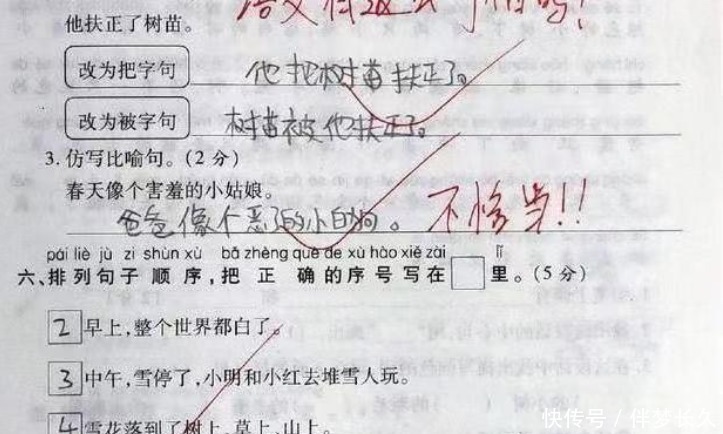 他扶正了树苗。
改为把字句
他把树苗扶正了。
改为被字句
树苗被他扶正了。
3. 仿写比喻句。(2 分)
春天像个害羞的小姑娘。
爸爸像个恶了的小白狗。不恰当!!
pái liè jù zi shùn xù bǎ zhèng què de xù hào xiě zài lǐ
六、排列句子顺序,把正确的序号写在□里。(5 分)
2 早上,整个世界都白了。
3 中午,雪停了,小明和小红去堆雪人玩。
4 雪花落到了树上、草上、山上。
快传号 / 伴梦长久